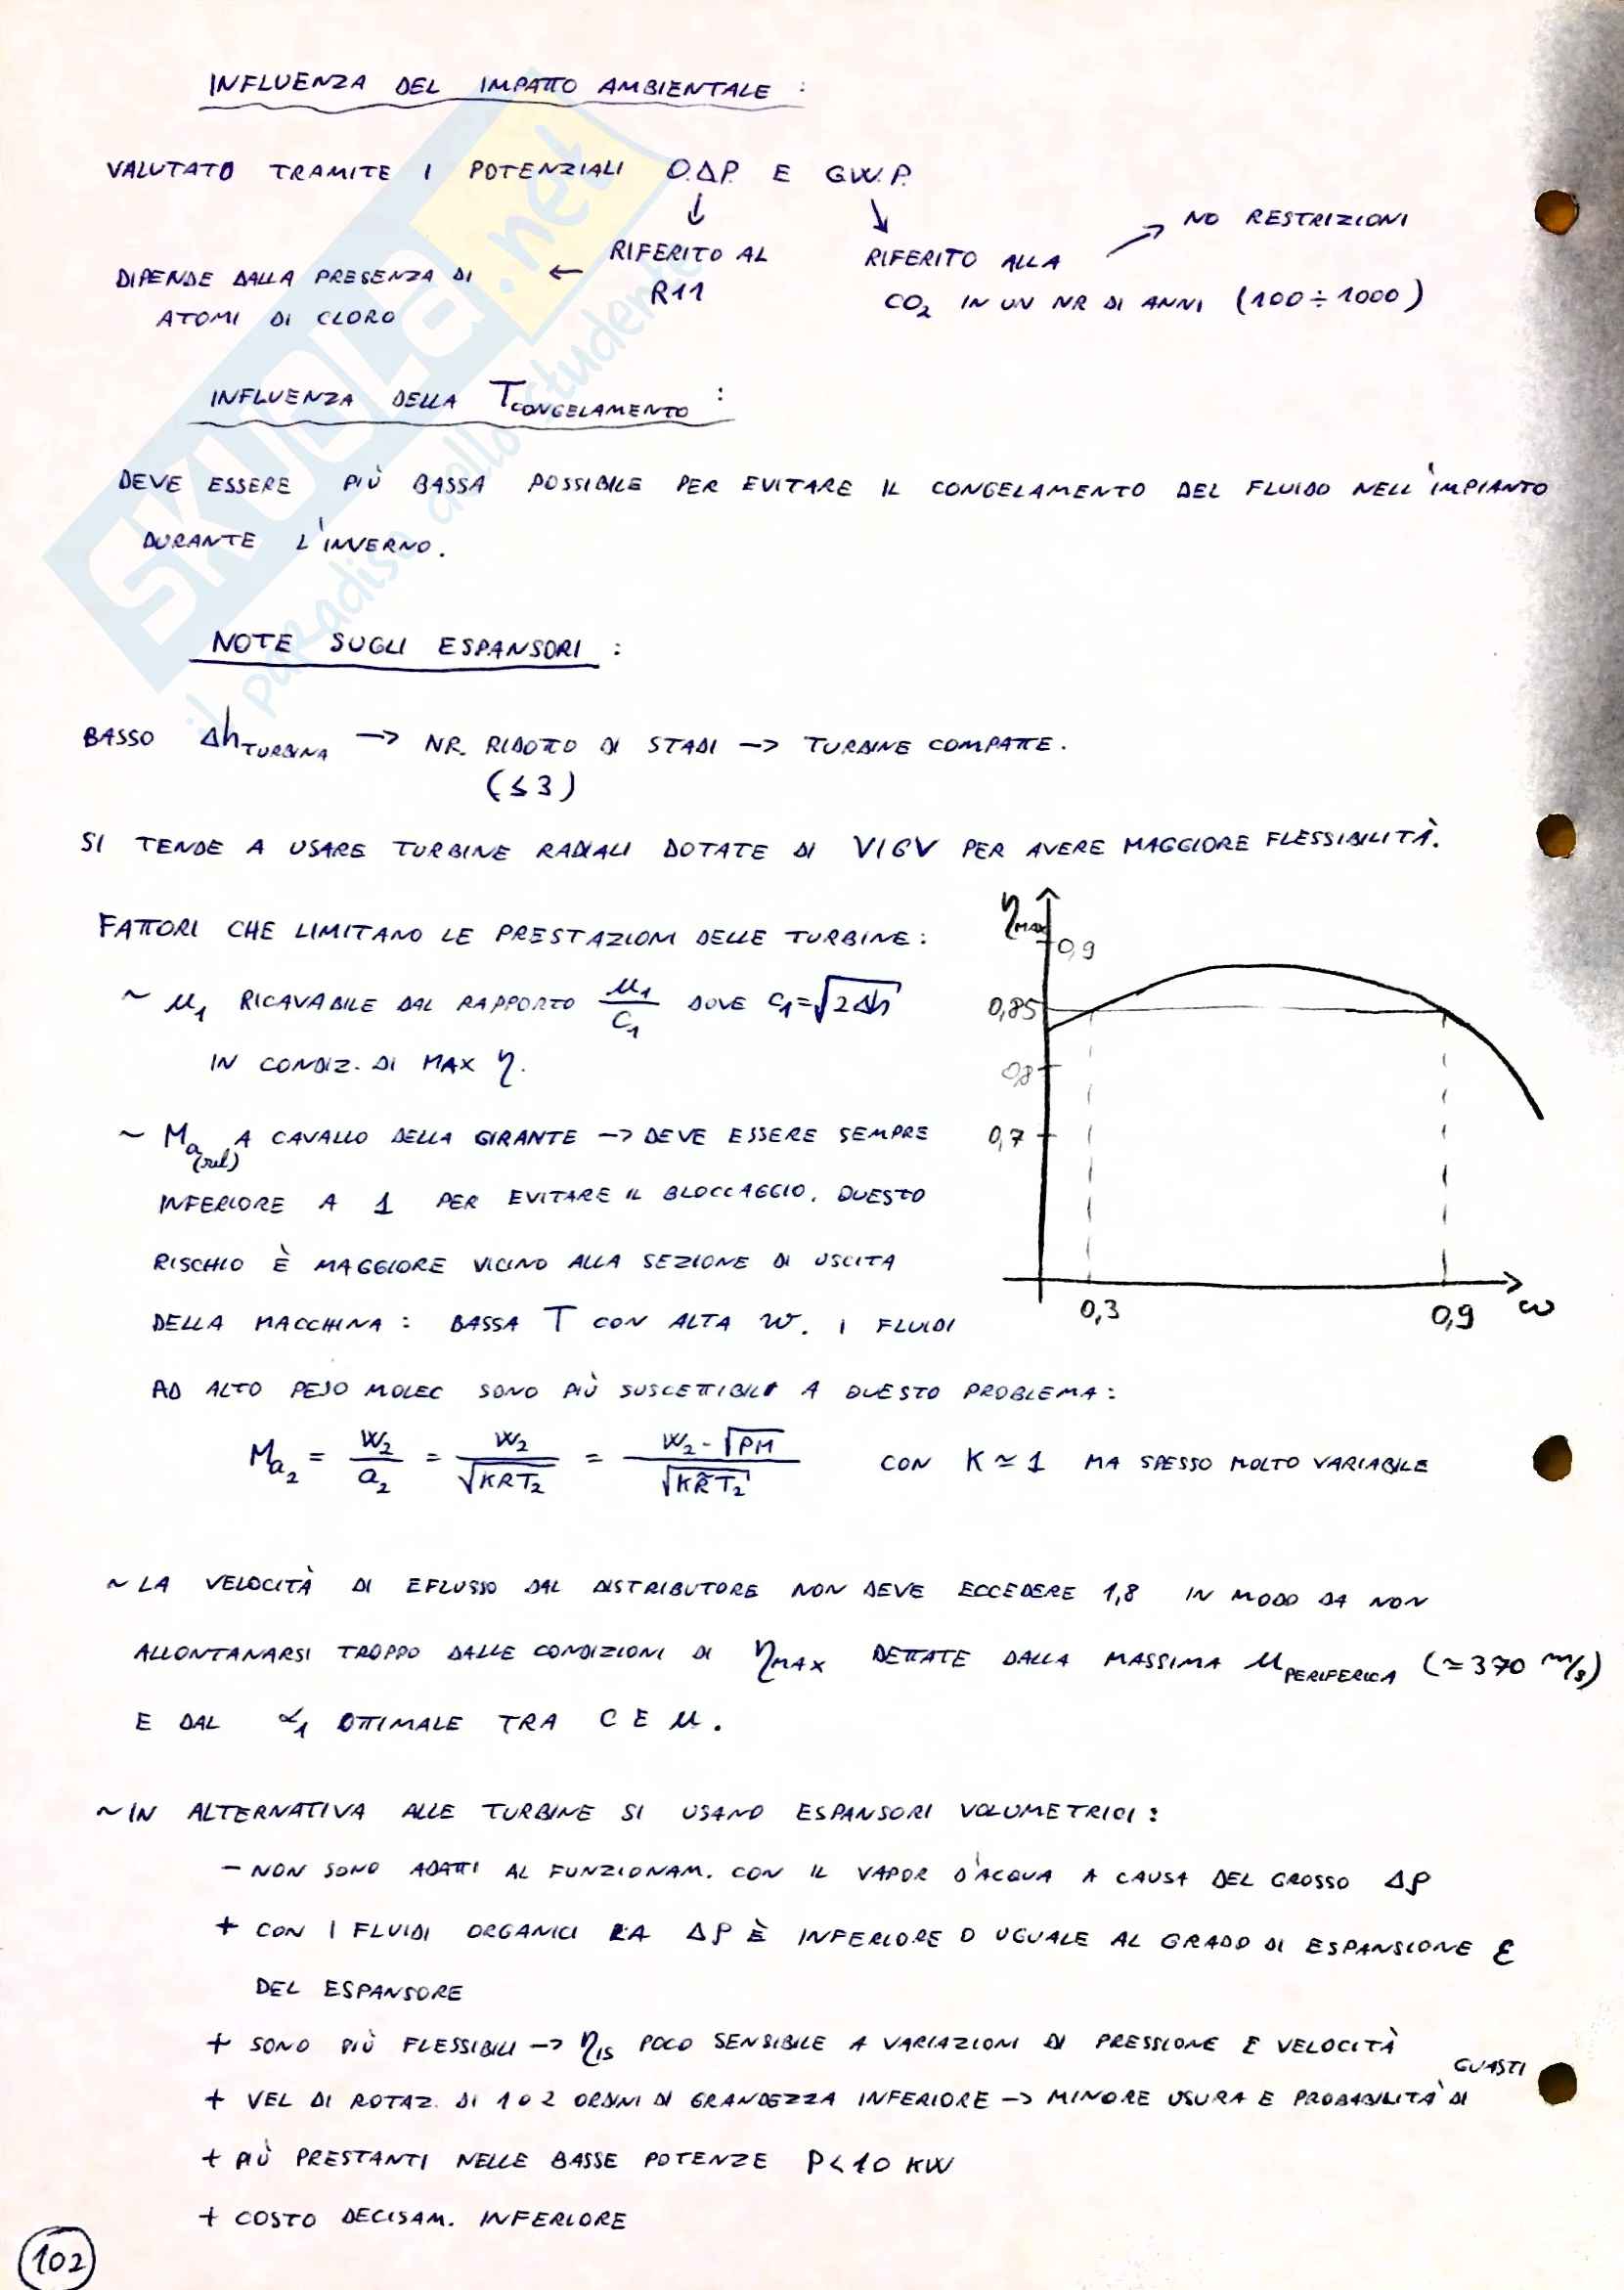 INFLUENZA DEL IMPATTO AMBIENTALE :
VALUTATO TRAMITE I POTENZIALI O.D.P. E G.W.P.
↓ ↘
RIFERITO AL
R11
← DIPENDE DALLA PRESENZA DI
ATOMI DI CLORO
RIFERITO ALLA → NO RESTRIZIONI
CO₂ IN UN NR DI ANNI (100÷1000)
INFLUENZA DELLA T_CONGELAMENTO :
DEVE ESSERE PIÙ BASSA POSSIBILE PER EVITARE IL CONGELAMENTO DEL FLUIDO NELL'IMPIANTO
DURANTE L'INVERNO.
NOTE SUGLI ESPANSORI :
BASSO Δh_TURBINA → NR. RIDOTTO DI STADI → TURBINE COMPATTE.
(≤3)
SI TENDE A USARE TURBINE RADIALI DOTATE DI VIGV PER AVERE MAGGIORE FLESSIBILITÀ.
FATTORI CHE LIMITANO LE PRESTAZIONI DELLE TURBINE:
~ u₁ RICAVABILE DAL RAPPORTO u₁/c₁ DOVE c₁=√2Δh
IN CONDIZ. DI MAX η.
~ Ma(rel) A CAVALLO DELLA GIRANTE → DEVE ESSERE SEMPRE
INFERIORE A 1 PER EVITARE IL BLOCCAGGIO. QUESTO
RISCHIO È MAGGIORE VICINO ALLA SEZIONE DI USCITA
DELLA MACCHINA : BASSA T CON ALTA w. I FLUIDI
AD ALTO PESO MOLEC SONO PIÙ SUSCETTIBILI A QUESTO PROBLEMA:
η_MAX
0,9
0,85
0,8
0,7
0,3
0,9
ω
Ma₂ = W₂/a₂ = W₂/√KRT₂ = W₂·√PM/√KR̃T₂ CON K ≃ 1 MA SPESSO MOLTO VARIABILE
~ LA VELOCITÀ DI EFLUSSO DAL DISTRIBUTORE NON DEVE ECCEDERE 1,8 IN MODO DA NON
ALLONTANARSI TROPPO DALLE CONDIZIONI DI η_MAX DETTATE DALLA MASSIMA u_PERIFERICA (≃370 m/s)
E DAL α₁ OTTIMALE TRA C E u.
~ IN ALTERNATIVA ALLE TURBINE SI USANO ESPANSORI VOLUMETRICI :
- NON SONO ADATTI AL FUNZIONAM. CON IL VAPOR D'ACQUA A CAUSA DEL GROSSO Δρ
+ CON I FLUIDI ORGANICI LA Δρ È INFERIORE O UGUALE AL GRADO DI ESPANSIONE ε
DEL ESPANSORE
+ SONO PIÙ FLESSIBILI → η_IS POCO SENSIBILE A VARIAZIONI DI PRESSIONE E VELOCITÀ
+ VEL DI ROTAZ. DI 1 O 2 ORDINI DI GRANDEZZA INFERIORE → MINORE USURA E PROBABILITÀ DI GUASTI
+ PIÙ PRESTANTI NELLE BASSE POTENZE P<10 KW
+ COSTO DECISAM. INFERIORE
102
SKUOLA.net
il paradiso dello studente